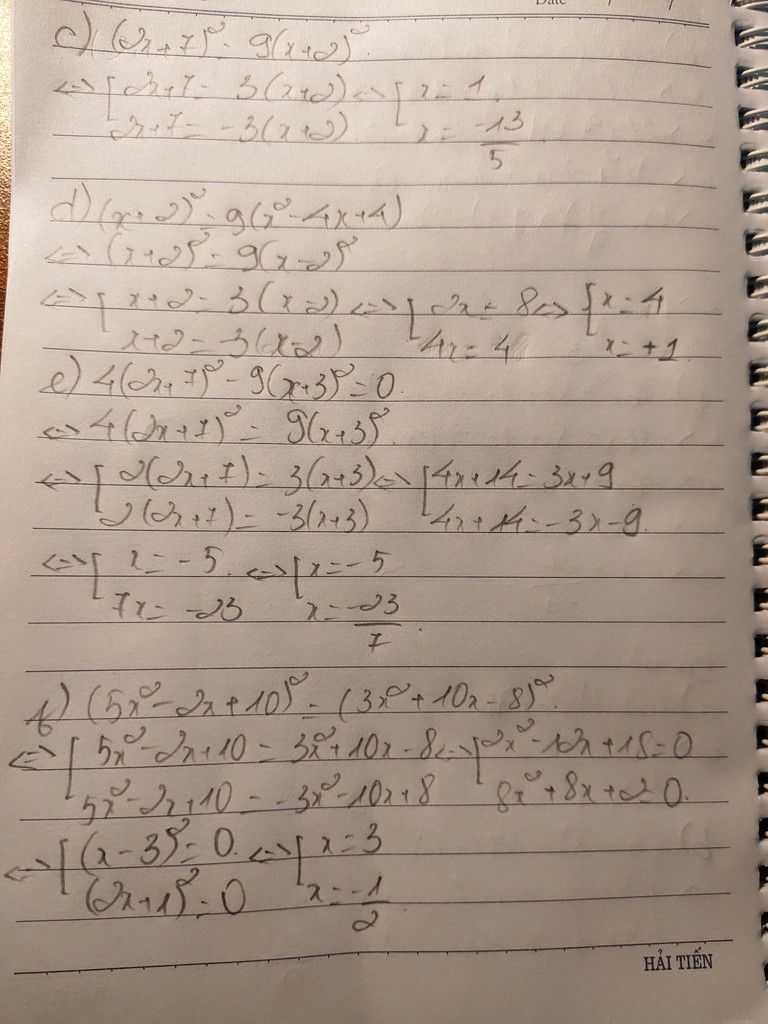 Date / /
c) (2x+7)² = 9(x+2)²
<=> [ 2x+7 = 3(x+2) <=> [ x = 1
2x+7 = -3(x+2) x = -13/5
d) (x+2)² = 9(x²-4x+4)
<=> (x+2)² = 9(x-2)²
<=> [ x+2 = 3(x-2) <=> [ 2x = 8 <=> [ x = 4
x+2 = -3(x-2) 4x = 4 x = +1
e) 4(2x+7)² - 9(x+3)² = 0
<=> 4(2x+7)² = 9(x+3)²
<=> [ 2(2x+7) = 3(x+3) <=> [ 4x+14 = 3x+9
2(2x+7) = -3(x+3) 4x+14 = -3x-9
<=> [ x = -5 <=> [ x = -5
7x = -23 x = -23/7
f) (5x²-2x+10)² = (3x²+10x-8)²
<=> [ 5x²-2x+10 = 3x²+10x-8 <=> [ 2x²-12x+18=0
5x²-2x+10 = -3x²-10x+8 8x²+8x+2=0
<=> [ (x-3)² = 0 <=> [ x = 3
(2x+1)² = 0 x = -1/2
HẢI TIẾN